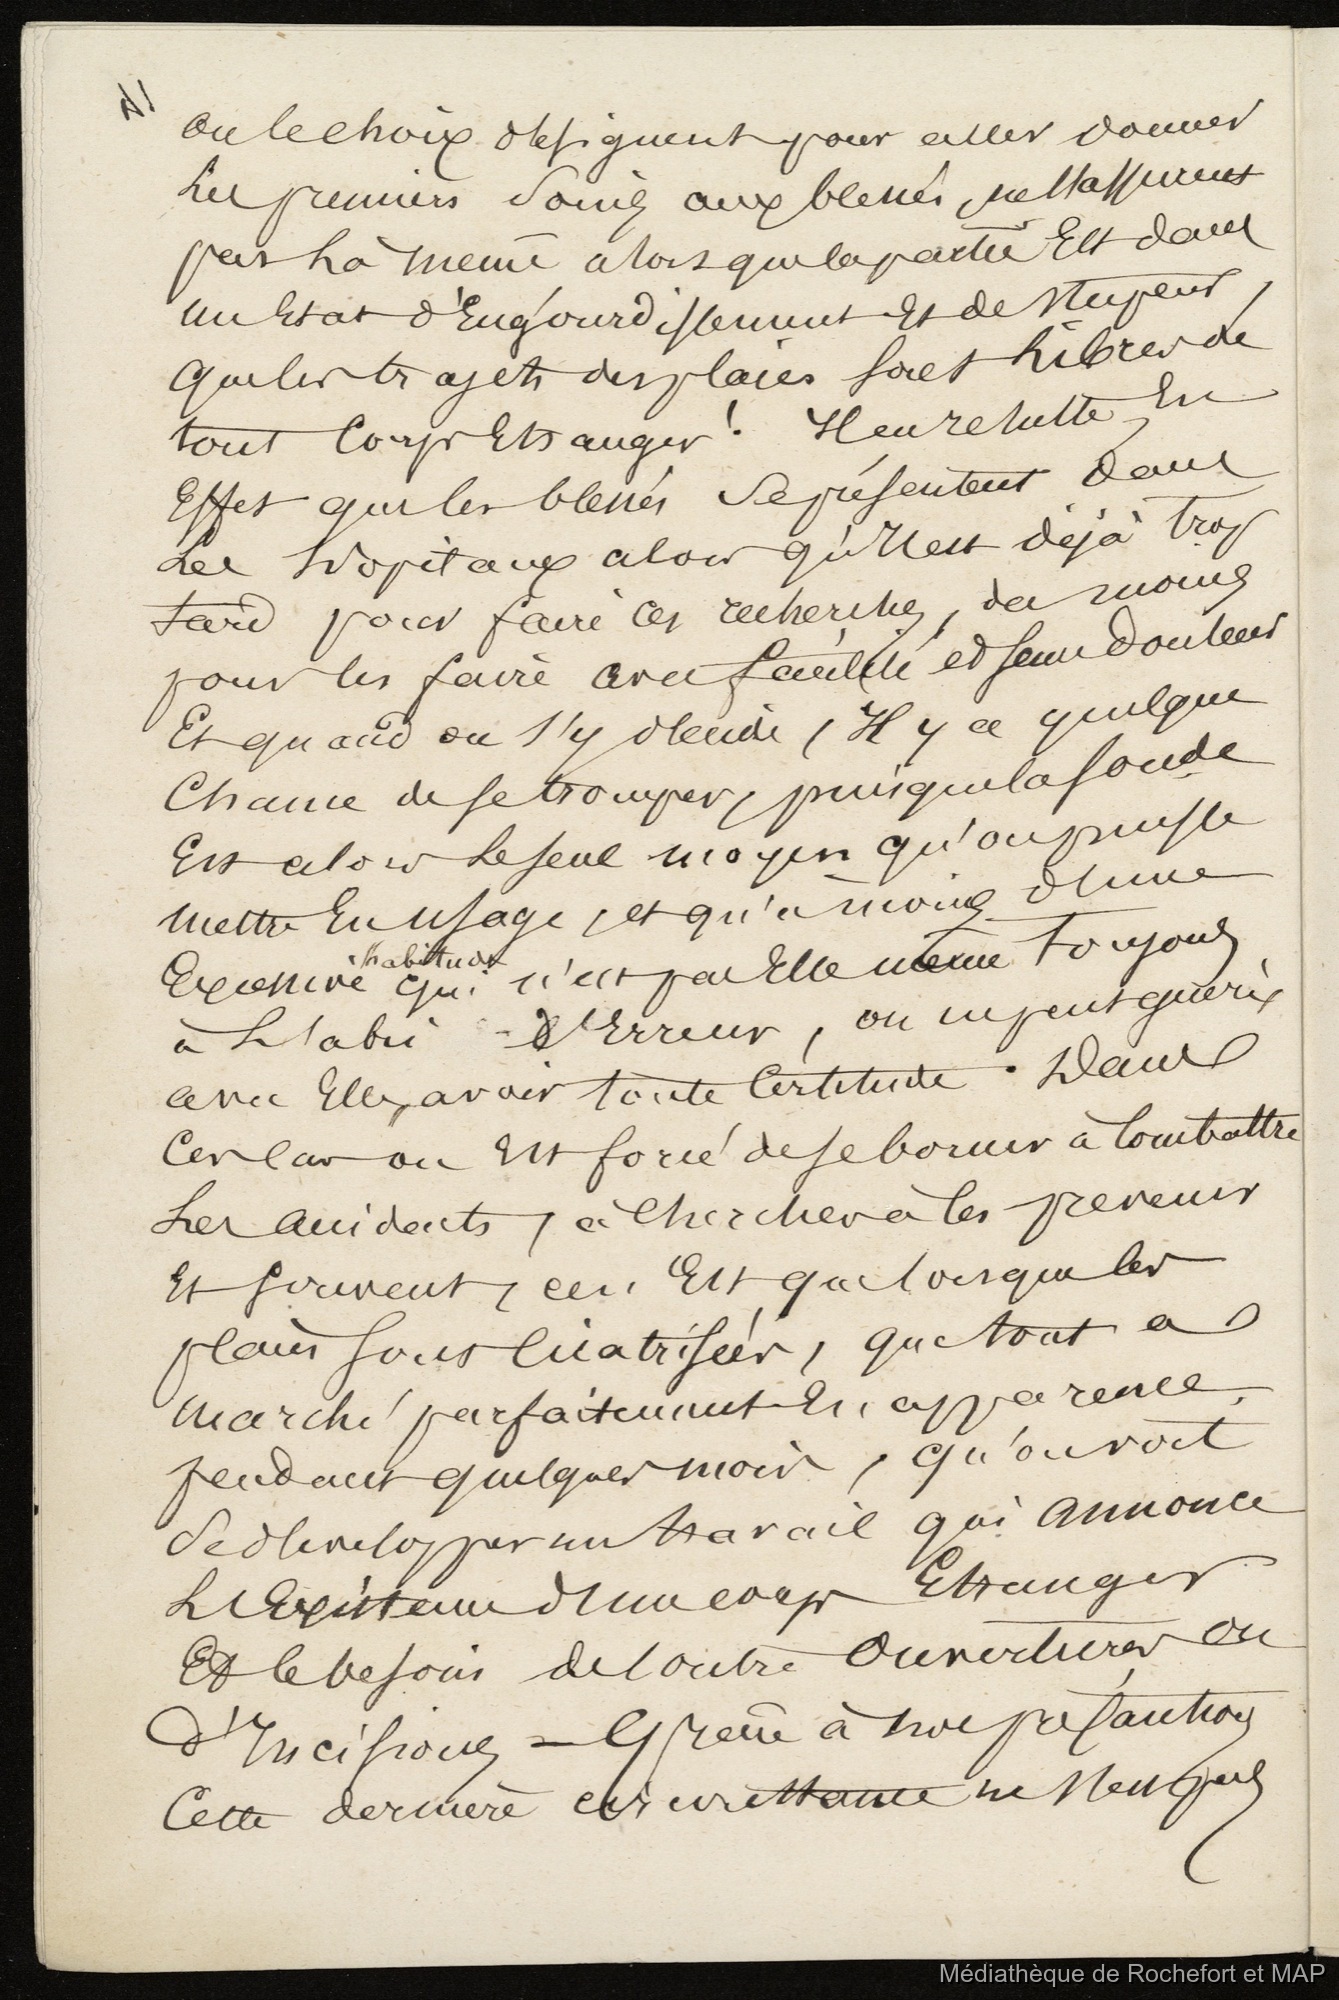 ou le choix désignent pour aller donner
les premiers soins aux blessés, ne s'assurent
pas là même alors que la partie Est dans
un Etat d'Engourdissement Et de stupeur,
que les trajets des plaies sont libres de
tout Corps Etranger! Il en résulte En
Effet que les blessés se présentent dans
Les hôpitaux alors qu'il est déjà trop
tard pour faire ces recherches, du moins
pour les faire avec facilité et sans douleur
Et quand on s'y décide, Il y a quelque
Chance de se tromper, puisque la sonde
Est alors le seul moyen qu'on puisse
mettre En usage, et qu'à moins d'une
habitude
Excessive qui n'est pas Elle même toujours
à L'abri d'Erreur, on ne peut guérir
avec Elle, avoir toute Certitude. Dans
Ces Cas on Est forcé de se borner à Combattre
Les accidents, à Chercher à les prevenir
Et souvent, ce n'Est que lorsque les
plaies sont Cicatrisées, que tout a
marché parfaitement En apparence
pendant quelques mois, qu'on voit
se développer un travail qui annonce
L'Existence d'un corps Etranger
Et le besoin de contre ouvertures ou
d'Incisions = Grâce à nos précautions
Cette dernière circonstance ne s'est pas
Médiathèque de Rochefort et MAP